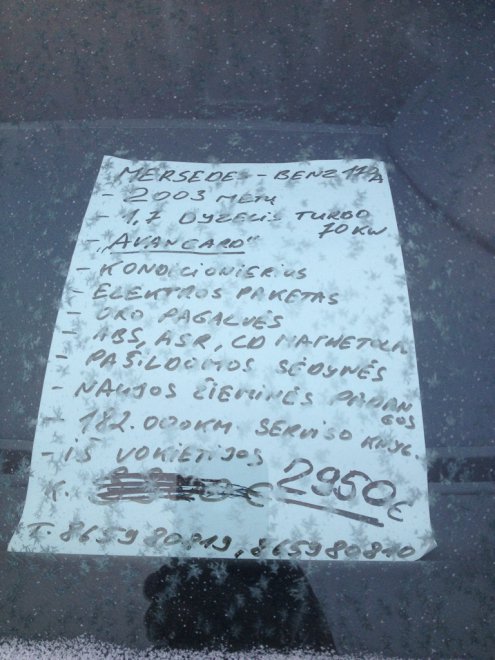 MERSEDE - BENZ 170 A
- 2003 METŲ
- 1.7 DYZELIS TURBO
70 KW
- „AVANGARD"
- KONDICIONIERIUS
- ELEKTROS PAKETAS
- ORO PAGALVĖS
- ABS, ASR, CD MAGNETOLA
- PAŠILDOMOS SĖDYNĖS
- NAUJOS ŽIEMINĖS PADAN
GOS
- 182.000KM SERVISO KNYG.
- IŠ VOKIETIJOS
K. € 2950€
T. 865980819, 865980810